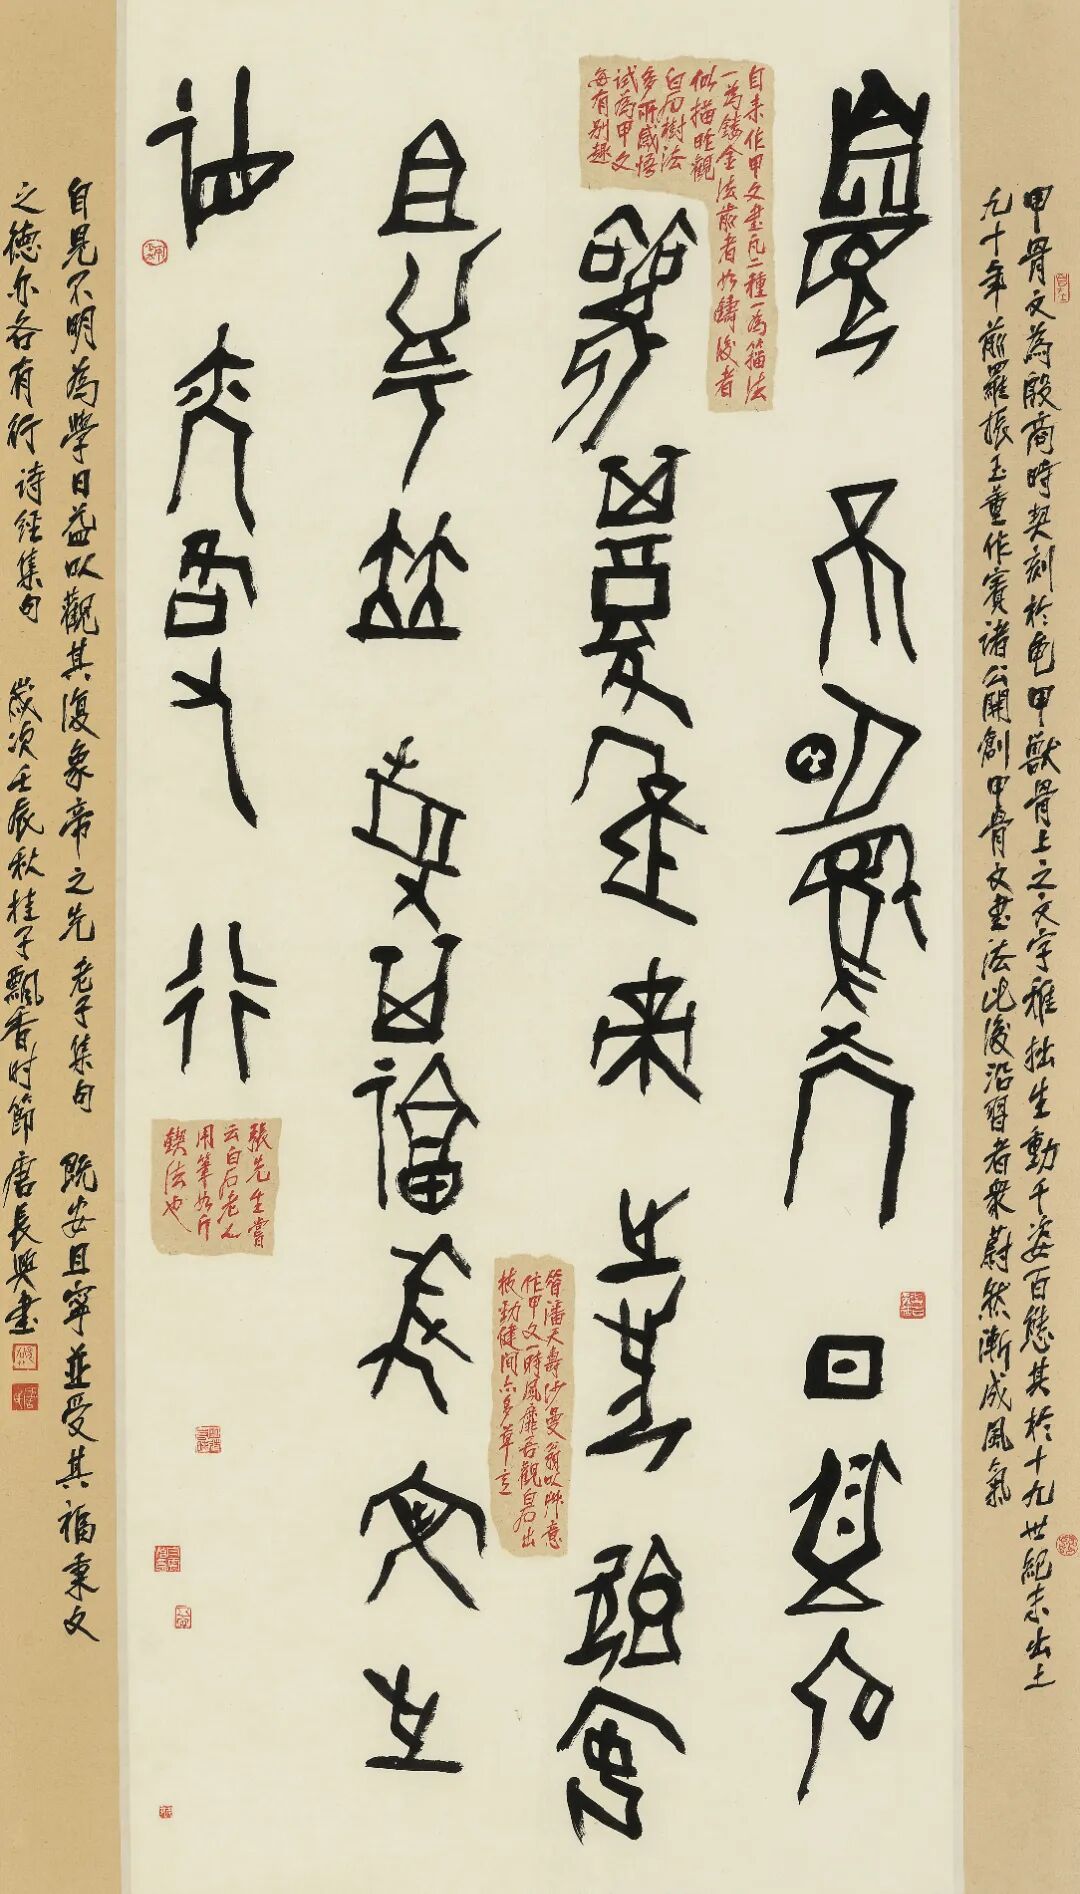 甲骨文為殷商時契刻於龟甲獸骨上之文字稚拙生動千姿百態其於十九世紀末出土
九十年前羅振玉董作賓諸公開創甲骨文書法此後沿習者衆蔚然漸成風氣
自見不明為學日益以
觀其復象帝之先既安
且寧並受其福秉文之
德亦各有行
自来作甲文書凡二種一為法
一為鏤金法前者如鑄後者
似描昨觀
白石樹法
多所感悟
試為甲文
每有别趣
昔潘天壽沙曼翁以艸意
作甲文一時風靡吾觀白石出
枝勁健間亦多草意
張先生嘗
云白石老人
用筆如斤
鍥法也
自見不明為學日益以觀其復象帝之先 老子集句 既安且寧並受其福秉文
之德亦各有行 詩經集句 歲次壬辰秋桂子飄香时節唐長興書